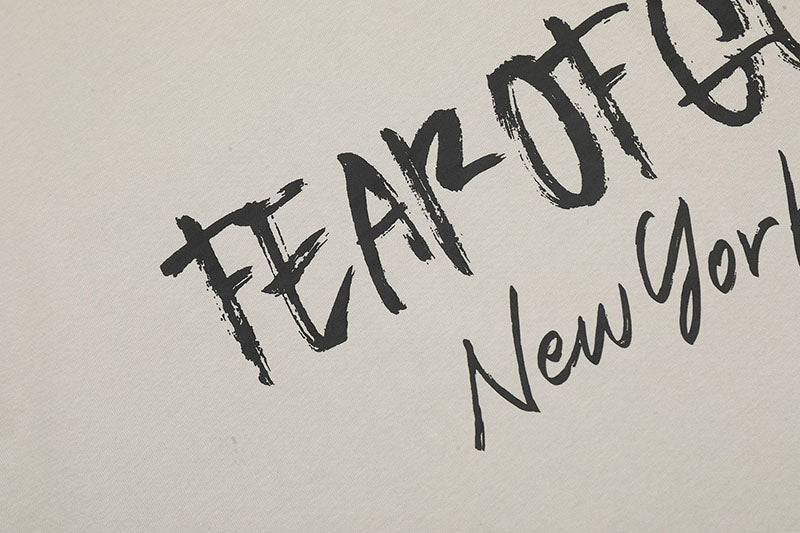 FEAR OF G
New York